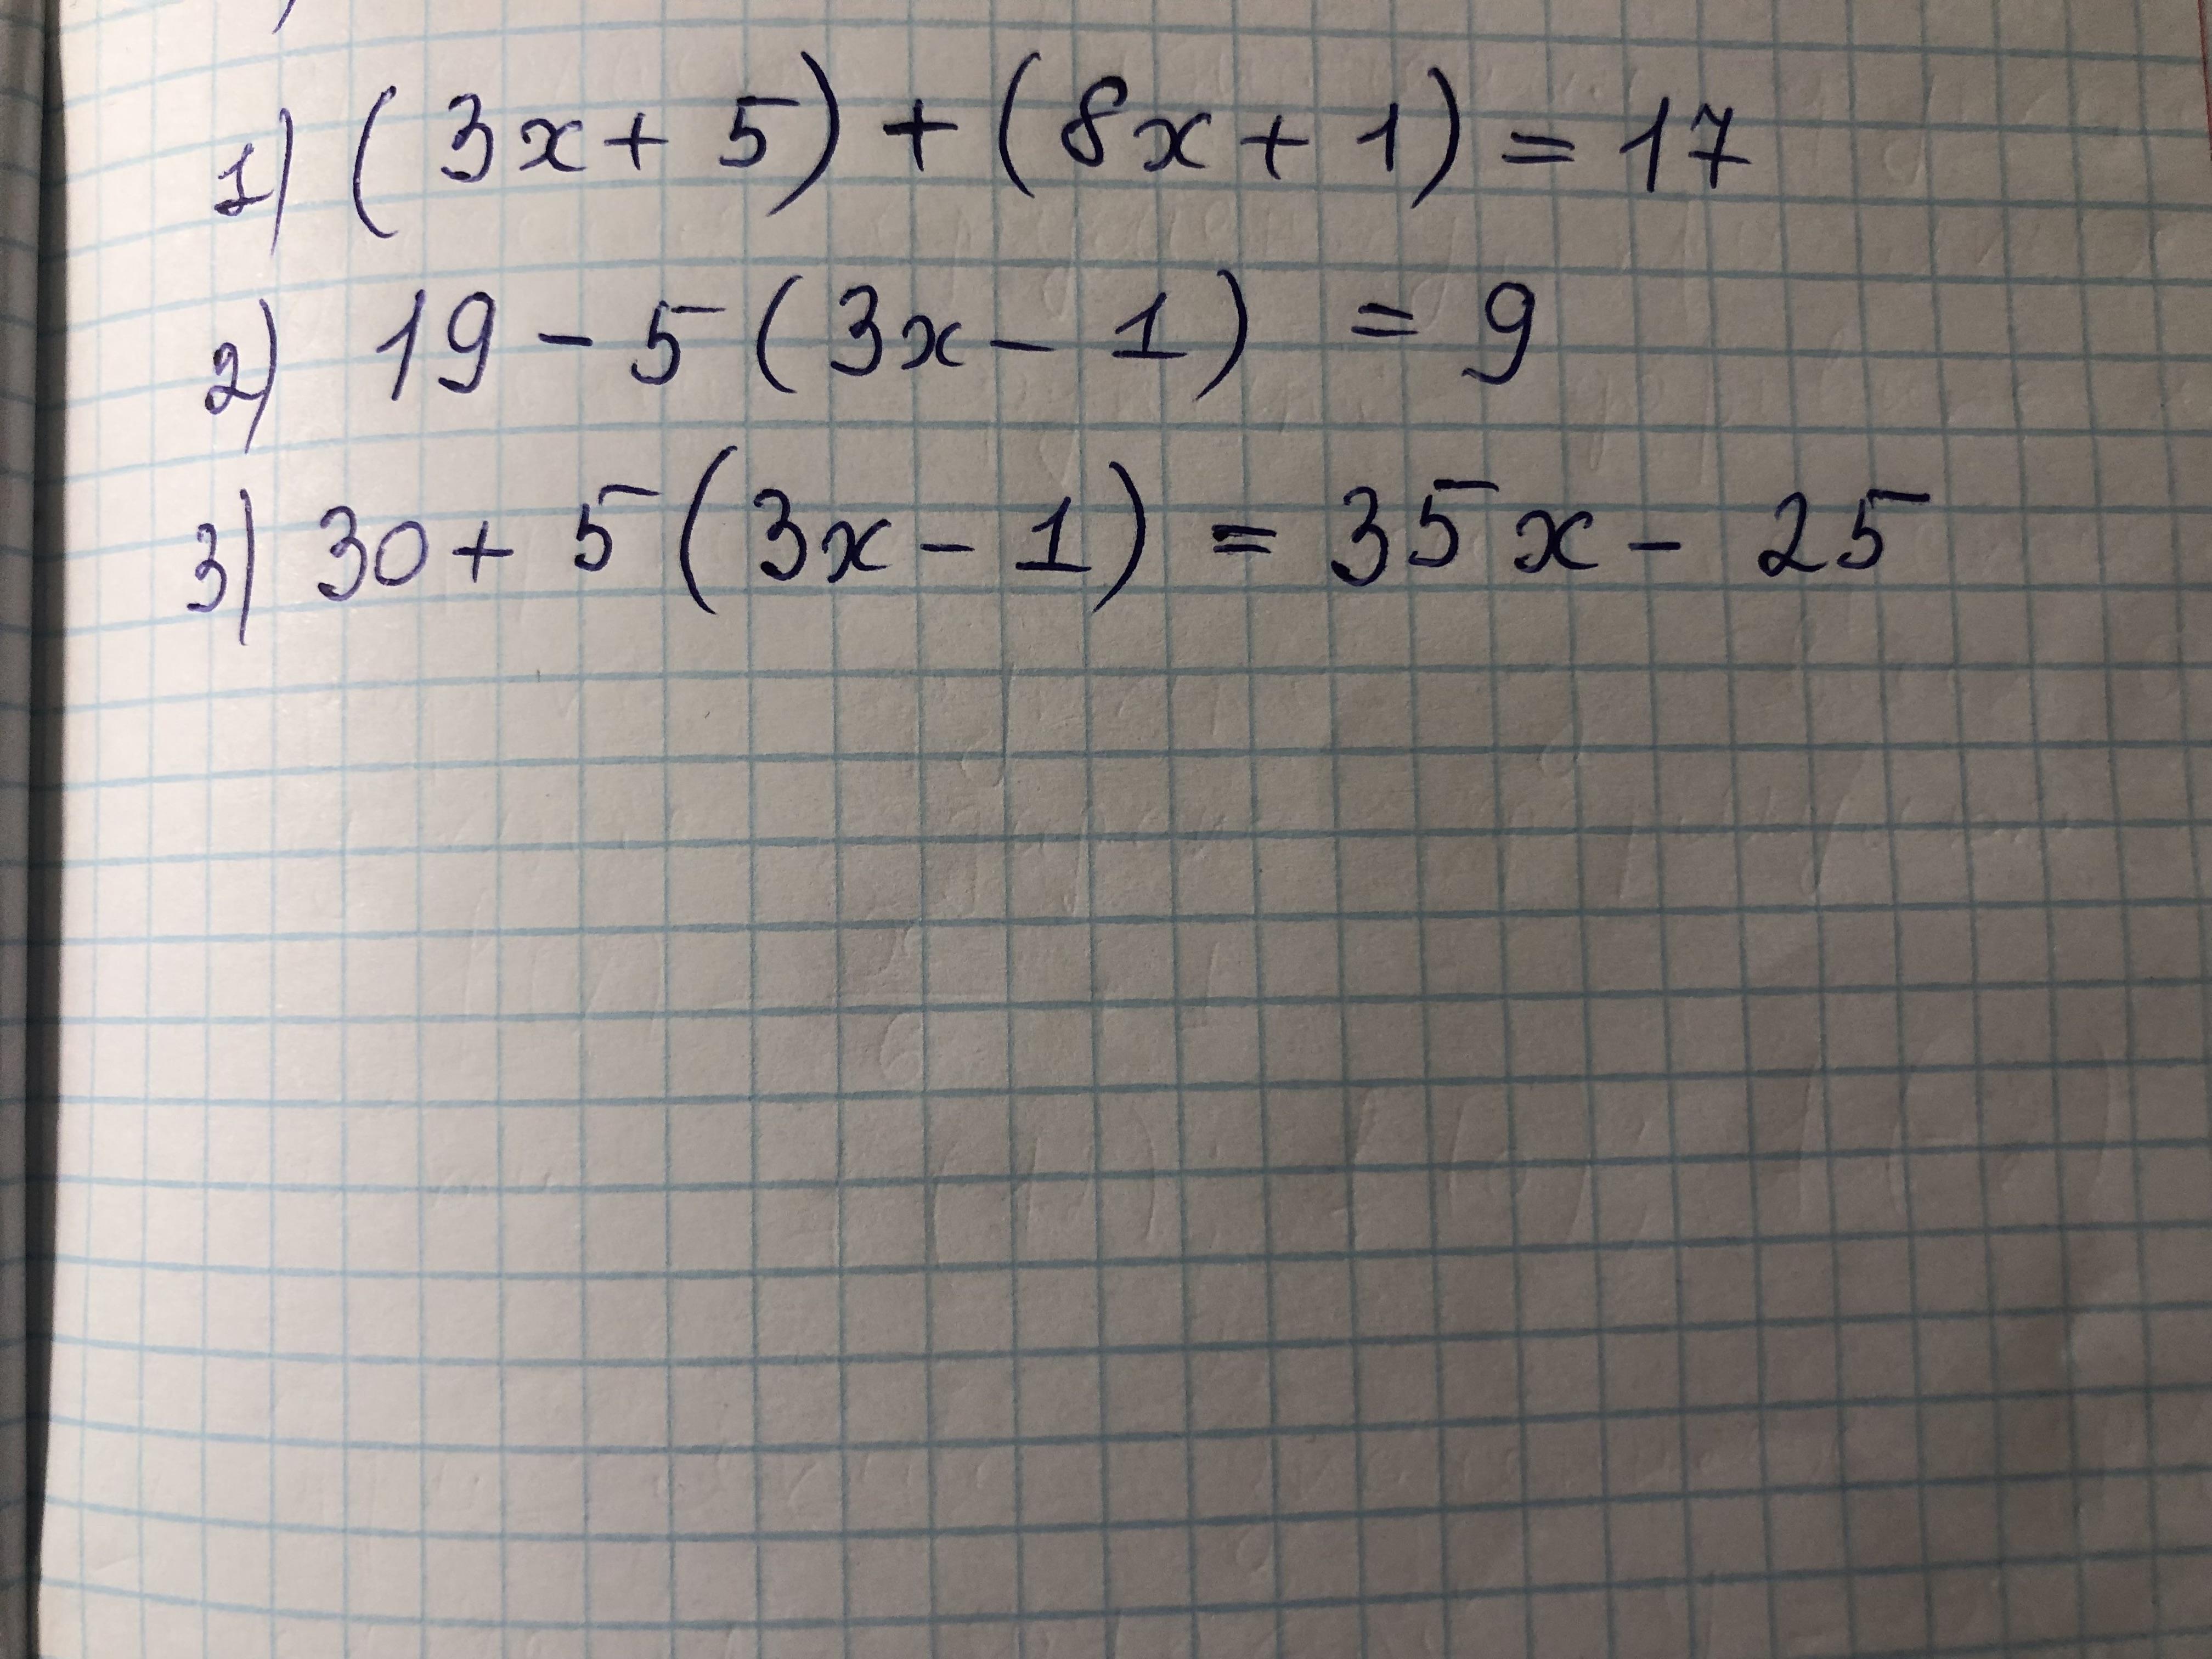 1) (3x + 5) + (8x + 1) = 17
2) 19 - 5 (3x - 1) = 9
3) 30 + 5 (3x - 1) = 35x - 25